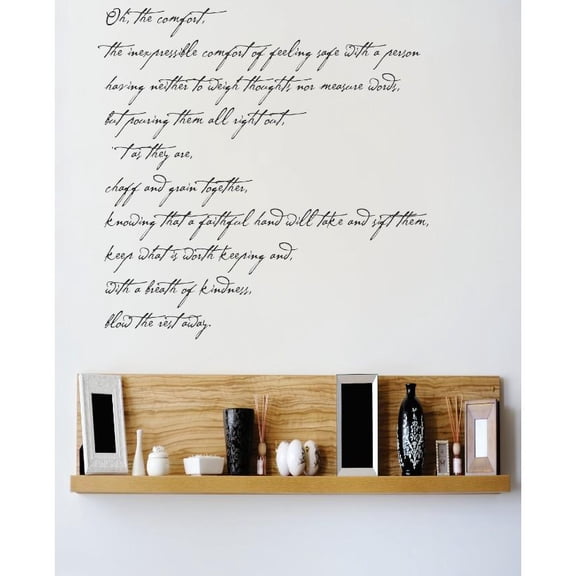 Oh, the comfort,
the inexpressible comfort of feeling safe with a person
having neither to weigh thoughts nor measure words,
but pouring them all right out,
't as they are,
chaff and grain together,
knowing that a faithful hand will take and sift them,
keep what is worth keeping and,
with a breath of kindness,
blow the rest away.